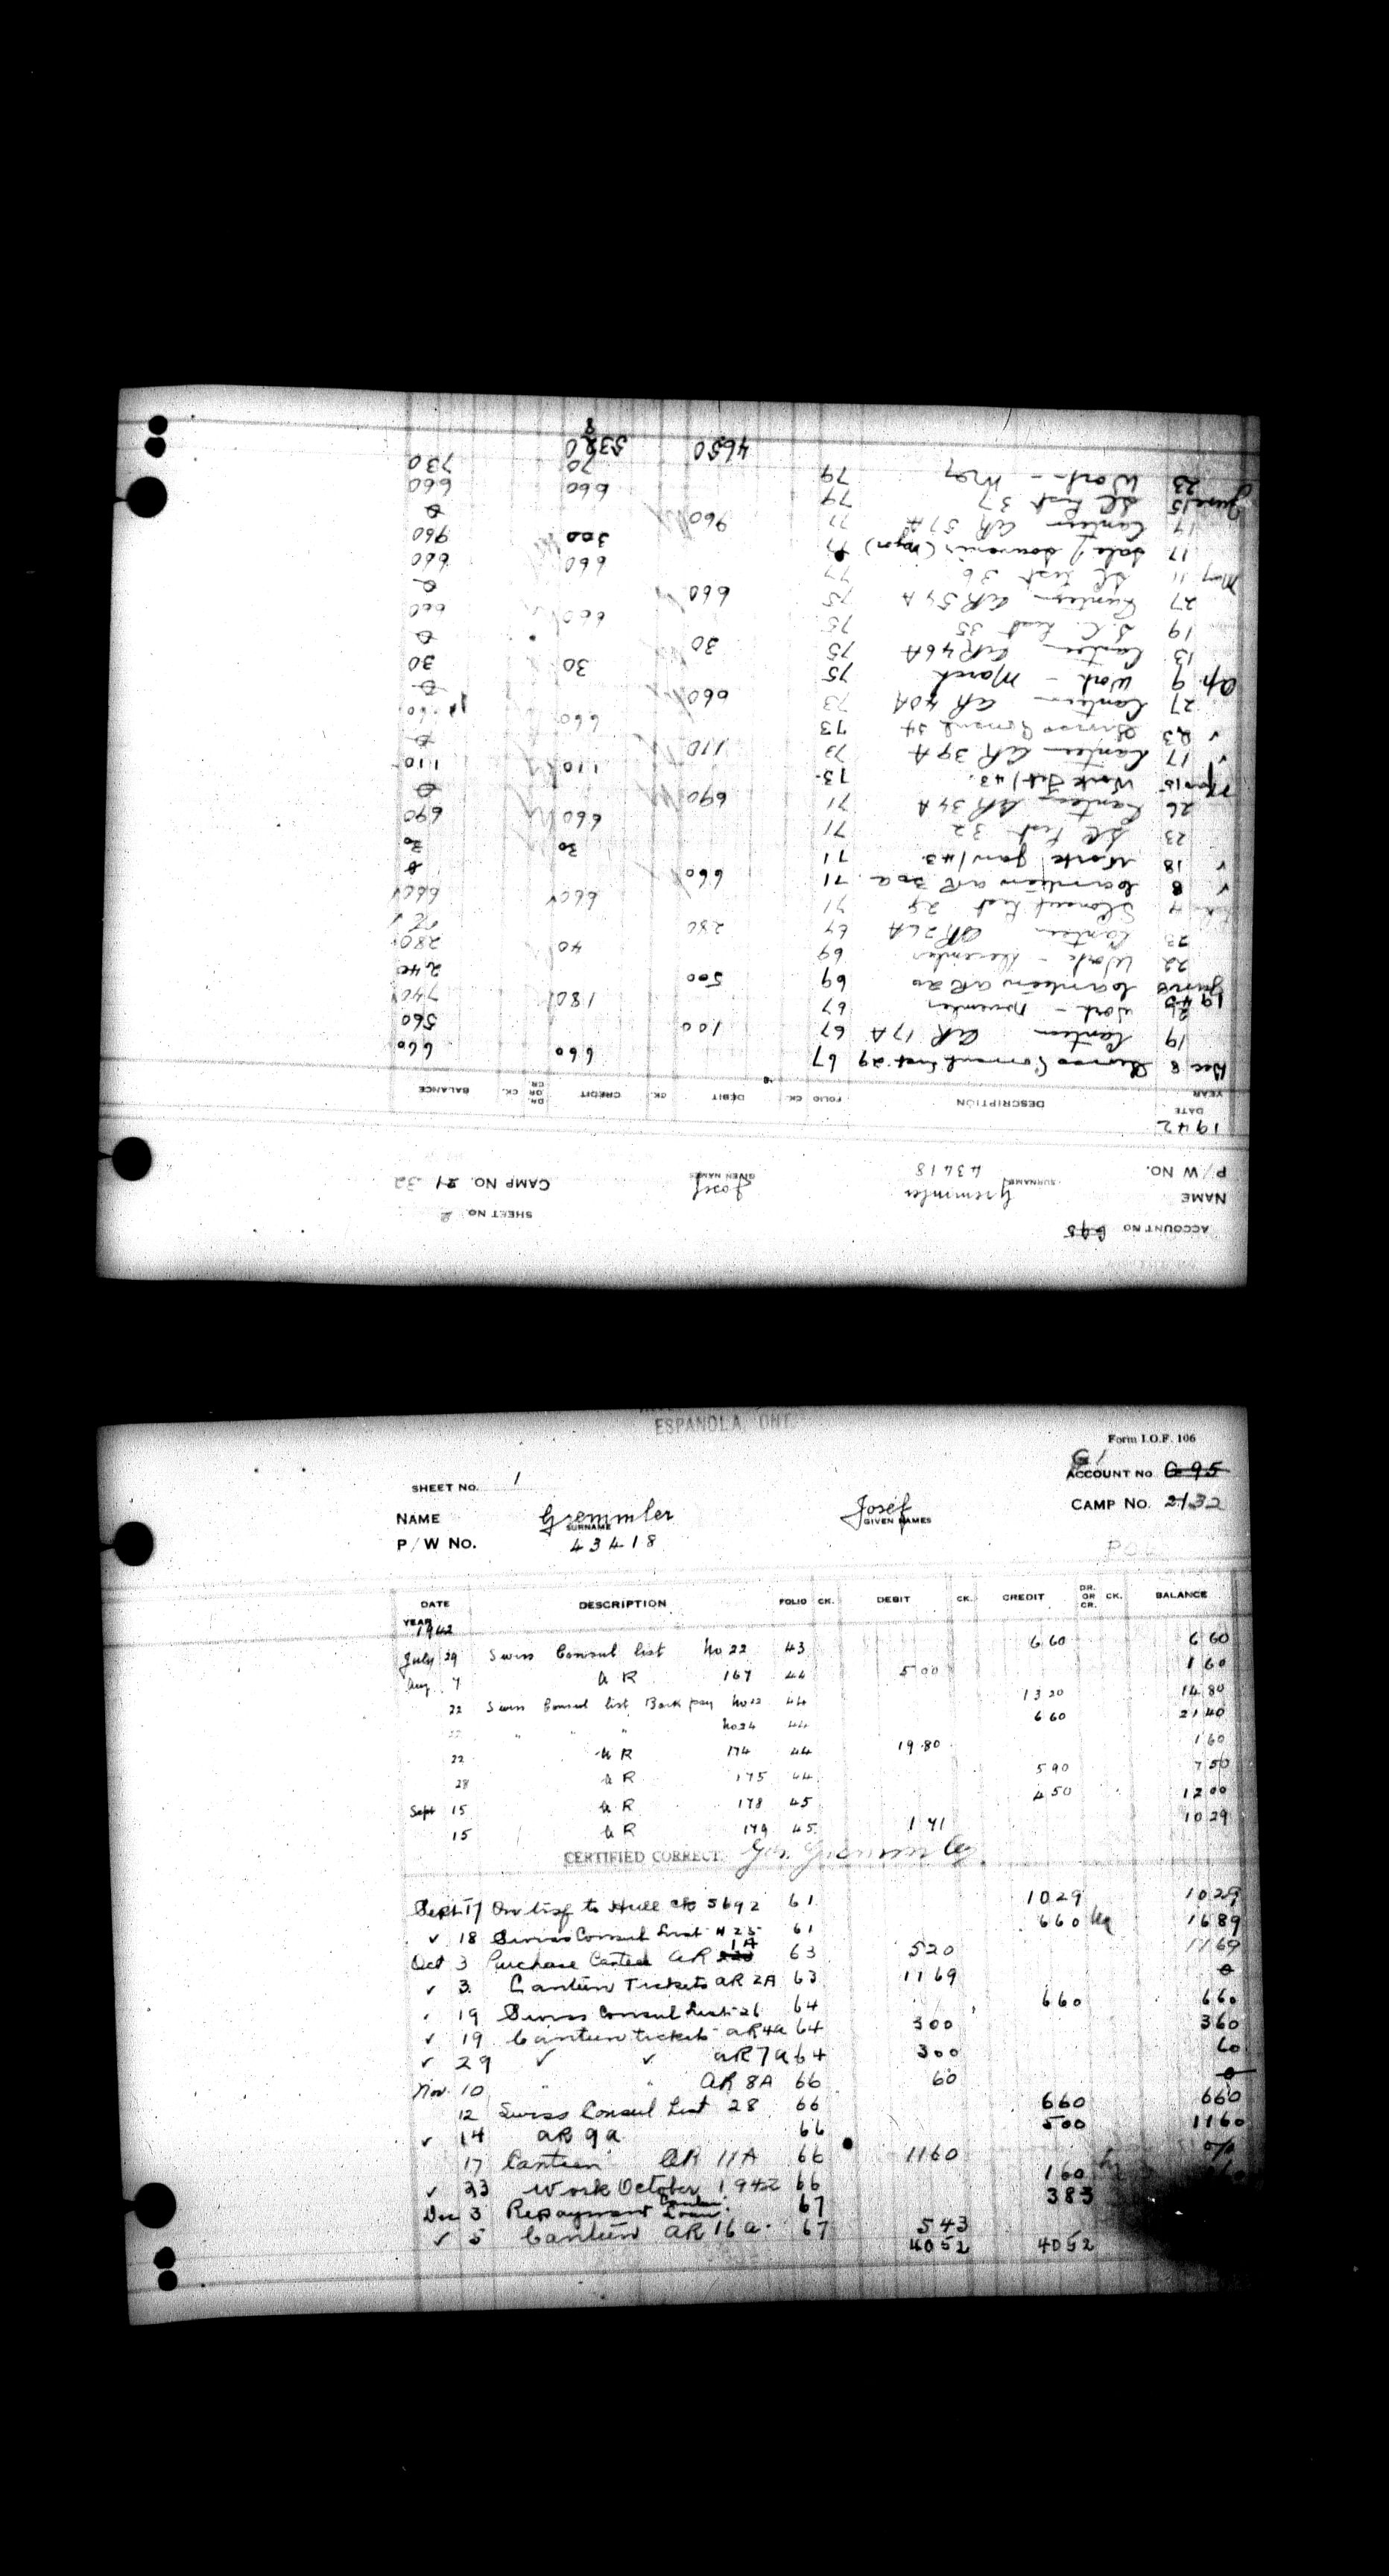 ACCOUNT NO G95
SHEET NO. 2
NAME Gremmler Josef CAMP NO. 21 32
SURNAME GIVEN NAMES
P/W NO. 43418
1942
DATE DESCRIPTION FOLIO CK. DEBIT CK. CREDIT DR. OR CR. CK. BALANCE
YEAR
Dec 8 Swiss Consul List 29 67 660 660
19 Canteen AR 17A 67 100 560
24 Work - November 67 180 740
1943
Canteen AR 20 69 500 240
22 Work - December 69 40 280
23 Canteen AR 26A 69 280
4 S Consul List 29 71 660 660
✓ 8 Canteen AR 30a 71 660 0
✓ 18 Work Jan/43 71 30 30
23 SC List 32 71 660 690
26 Canteen AR 34A 71 690 0
Mar 15 Work Feb/43. 73 110 110
✓ 17 Canteen AR 39A 73 110 0
✓ 23 Swiss Consul 34 73 660 660
27 Canteen AR 40A 73 660 0
Ap. 9 Work - March 75 30 30
13 Canteen AR 46A 75 30 0
19 S.C. List 35 75 660 660
27 Canteen AR 54A 75 660 0
May 11 SC List 36 77 660 660
17 Sale of Souvenirs 77 300 960
19 Canteen AR 57A 77 960 0
June 15 SC List 37 79 660 660
23 Work - May 79 70 730
4650 5380
ESPANOLA, ONT.
Form I.O.F. 106
G1
SHEET NO. 1 ACCOUNT NO G 95
NAME Gremmler Josef CAMP NO. 21 32
SURNAME GIVEN NAMES
P/W NO. 43418
DATE DESCRIPTION FOLIO CK. DEBIT CK. CREDIT DR. OR CR. CK. BALANCE
YEAR
1942
July 29 Swiss Consul list No 22 43 6 60 6 60
Aug 7 A R 167 44 5 00 1 60
22 Swiss Consul list Back pay No 12 44 13 20 14 80
22 " " " No 24 44 6 60 21 40
22 A R 174 44 19 80 1 60
28 A R 175 44 5 90 7 50
Sept 15 A R 178 45 4 50 12 00
15 A R 179 45 1 71 10 29
CERTIFIED CORRECT. Jos. Gremmler
Sept 17 On trsf to Hull ck 5692 61 10 29 10 29
✓ 18 Swiss Consul List # 25 61 660 1689
Oct 3 Purchase Canteen AR 1A 63 520 1169
✓ 3 Canteen Tickets AR 2A 63 1169 0
✓ 19 Swiss Consul List 26 64 660 660
✓ 19 Canteen tickets AR4a 64 300 360
✓ 29 ✓ ✓ AR7a 64 300 60
Nov. 10 " " AR 8A 66 60 0
12 Swiss Consul List 28 66 660 660
✓ 14 AR 9a 66 500 1160
17 Canteen AR 11A 66 1160 0/0
✓ 23 Work October 1942 66 160
Dec 3 Repayment Canteen Loan 67 383
✓ 5 Canteen AR 16a 67 543
4052 4052